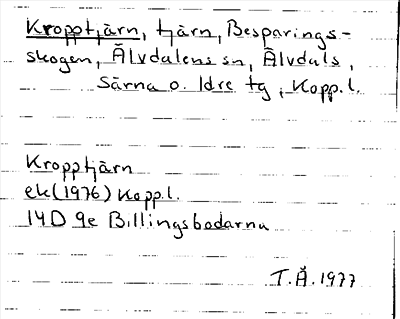 Kropptjärn, tjärn, Besparings-
skogen, Älvdalens sn, Älvdals,
Särna o. Idre tg, Kopp.l.
Kropptjärn
ek (1976) Kopp.l.
14D 9e Billingsbodarna
T.Å. 1977